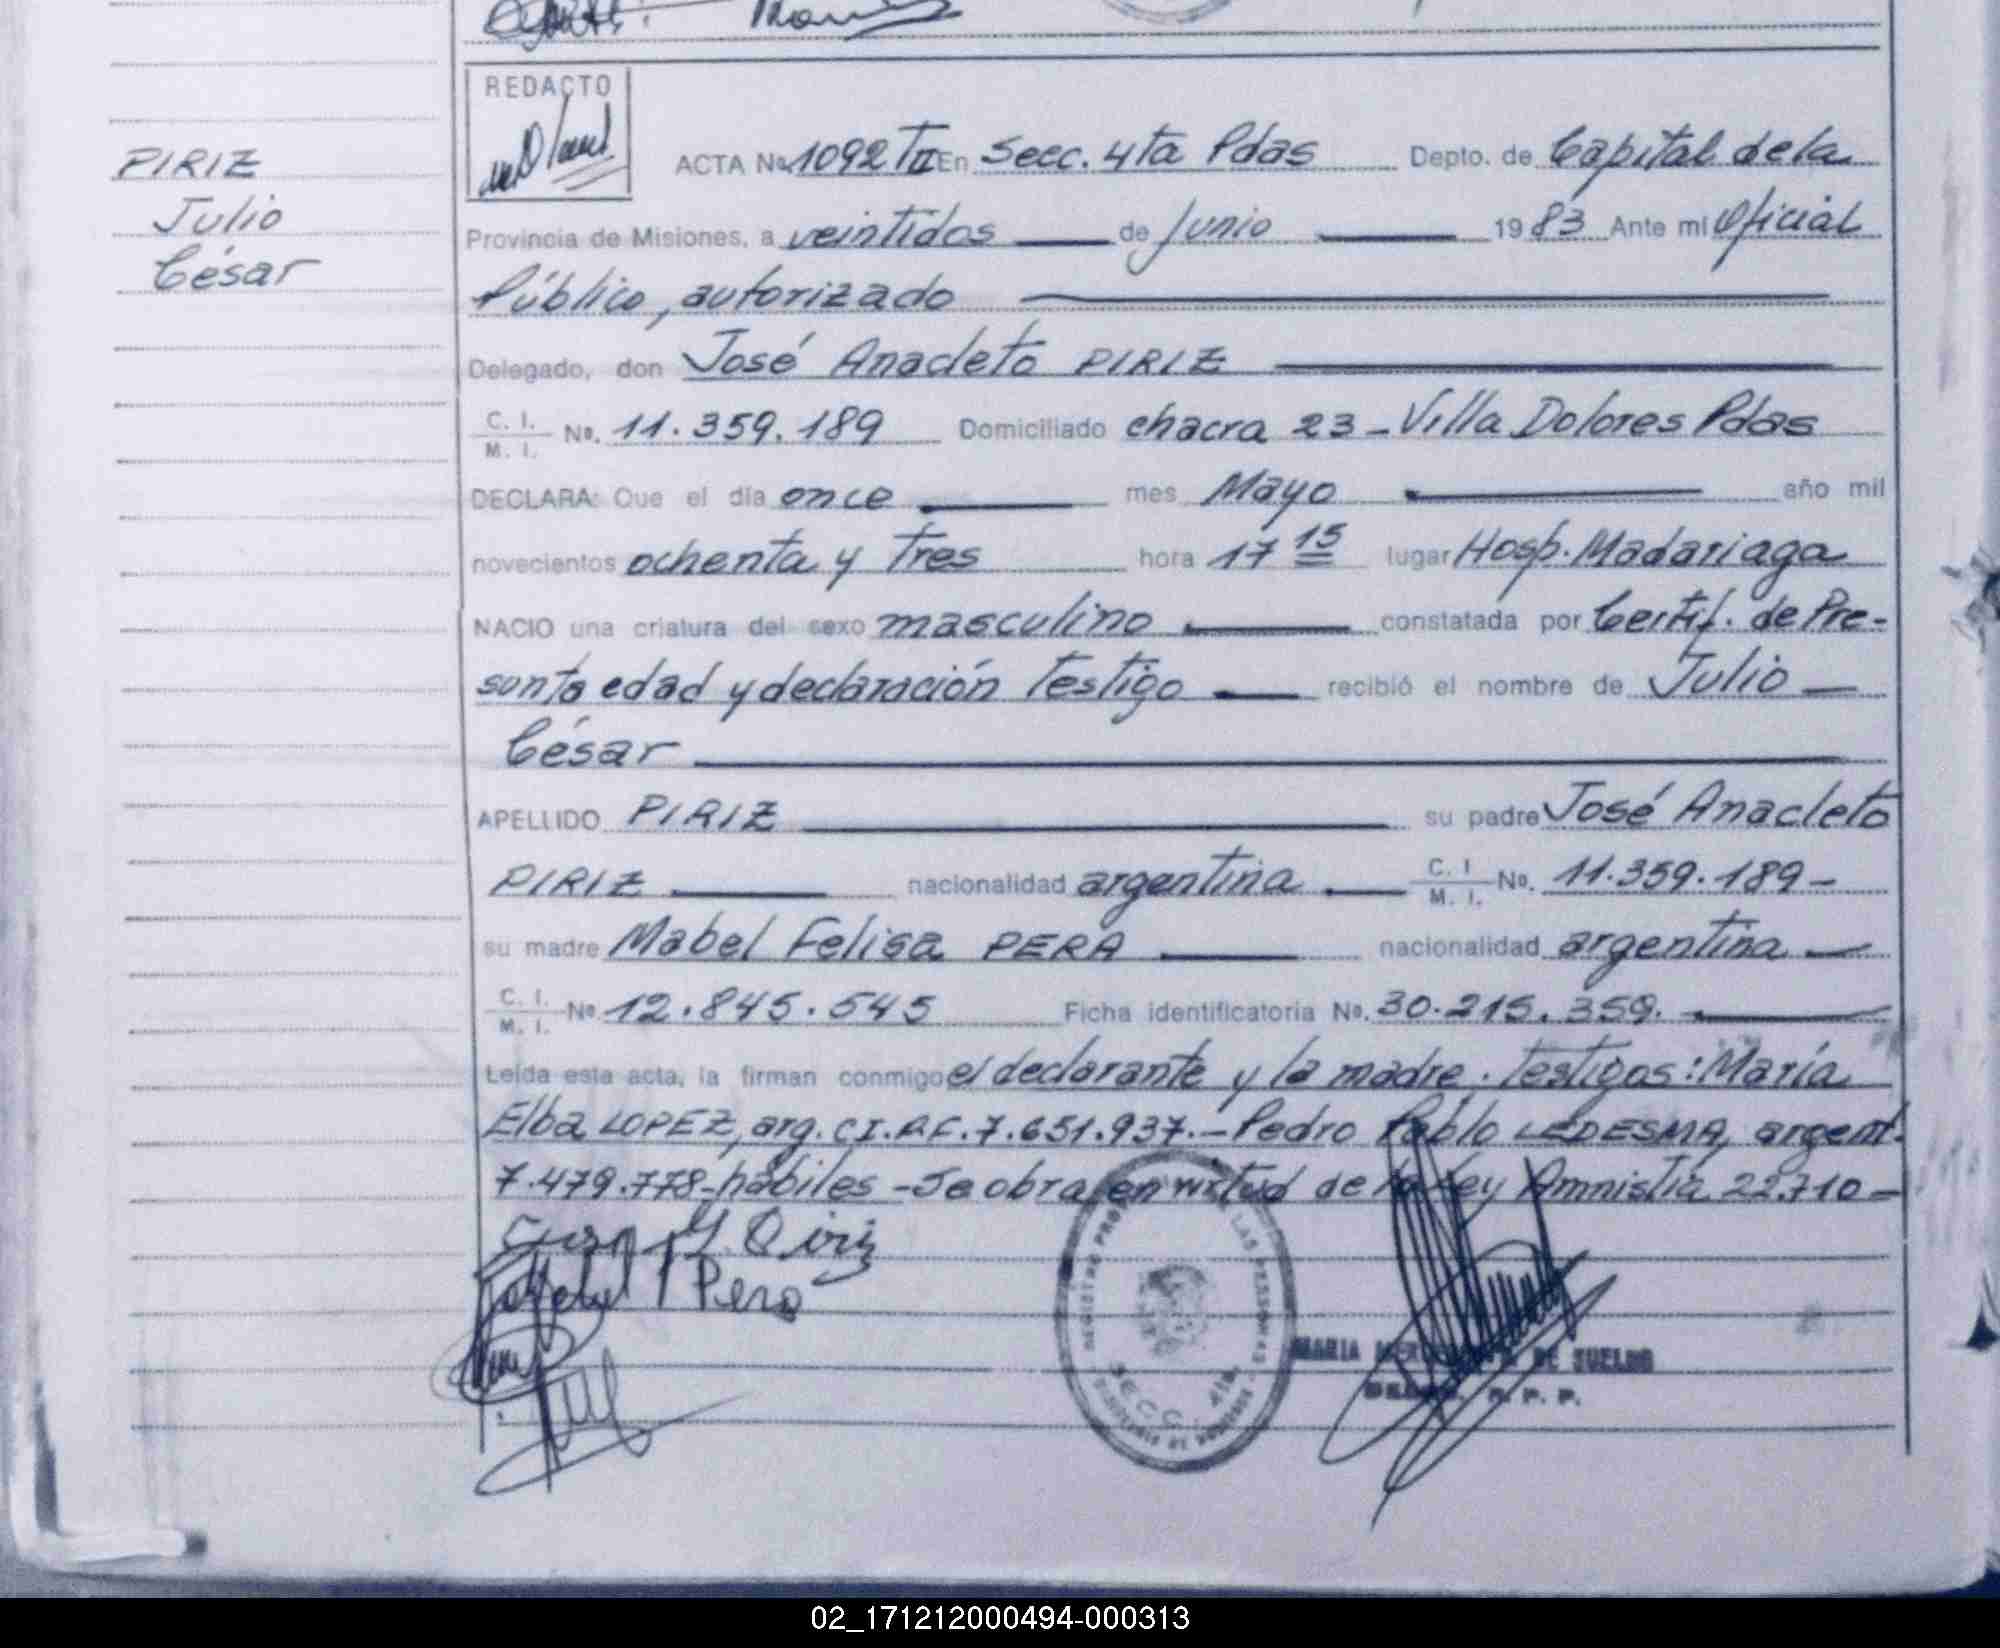 REDACTO
PIRIZ
Julio
César
ACTA No. 1092 TII En Secc. 4ta Pdas Depto. de Capital de la
Provincia de Misiones, a veintidos de Junio 1983 Ante mi Oficial
Público, autorizado
Delegado, don José Anacleto PIRIZ
C. I. M. I. No. 11.359.189 Domiciliado chacra 23 - Villa Dolores Pdas
DECLARA: Que el día once mes Mayo año mil
novecientos ochenta y tres hora 17 15 lugar Hosp. Madariaga
NACIO una criatura del sexo masculino constatada por Certif. de Pre-
sunta edad y declaración testigo recibió el nombre de Julio
César
APELLIDO PIRIZ su padre José Anacleto
PIRIZ nacionalidad argentina C. I. M. I. No. 11.359.189-
su madre Mabel Felisa PERA nacionalidad argentina
C. I. M. I. No. 12.845.545 Ficha identificatoria No. 30.215.359.
Leída esta acta, la firman conmigo el declarante y la madre. Testigos: María
Elba LOPEZ, arg. CI.A.F. 7.651.937.- Pedro Pablo LEDESMA, argent.
7.479.778-hábiles - Se obra en virtud de la Ley Amnistía 22.710-
Piriz
Pera
LAS PERSONAS
SECC. 4ta.
MARIA DE SUELDO
R. P. P.
02_171212000494-000313